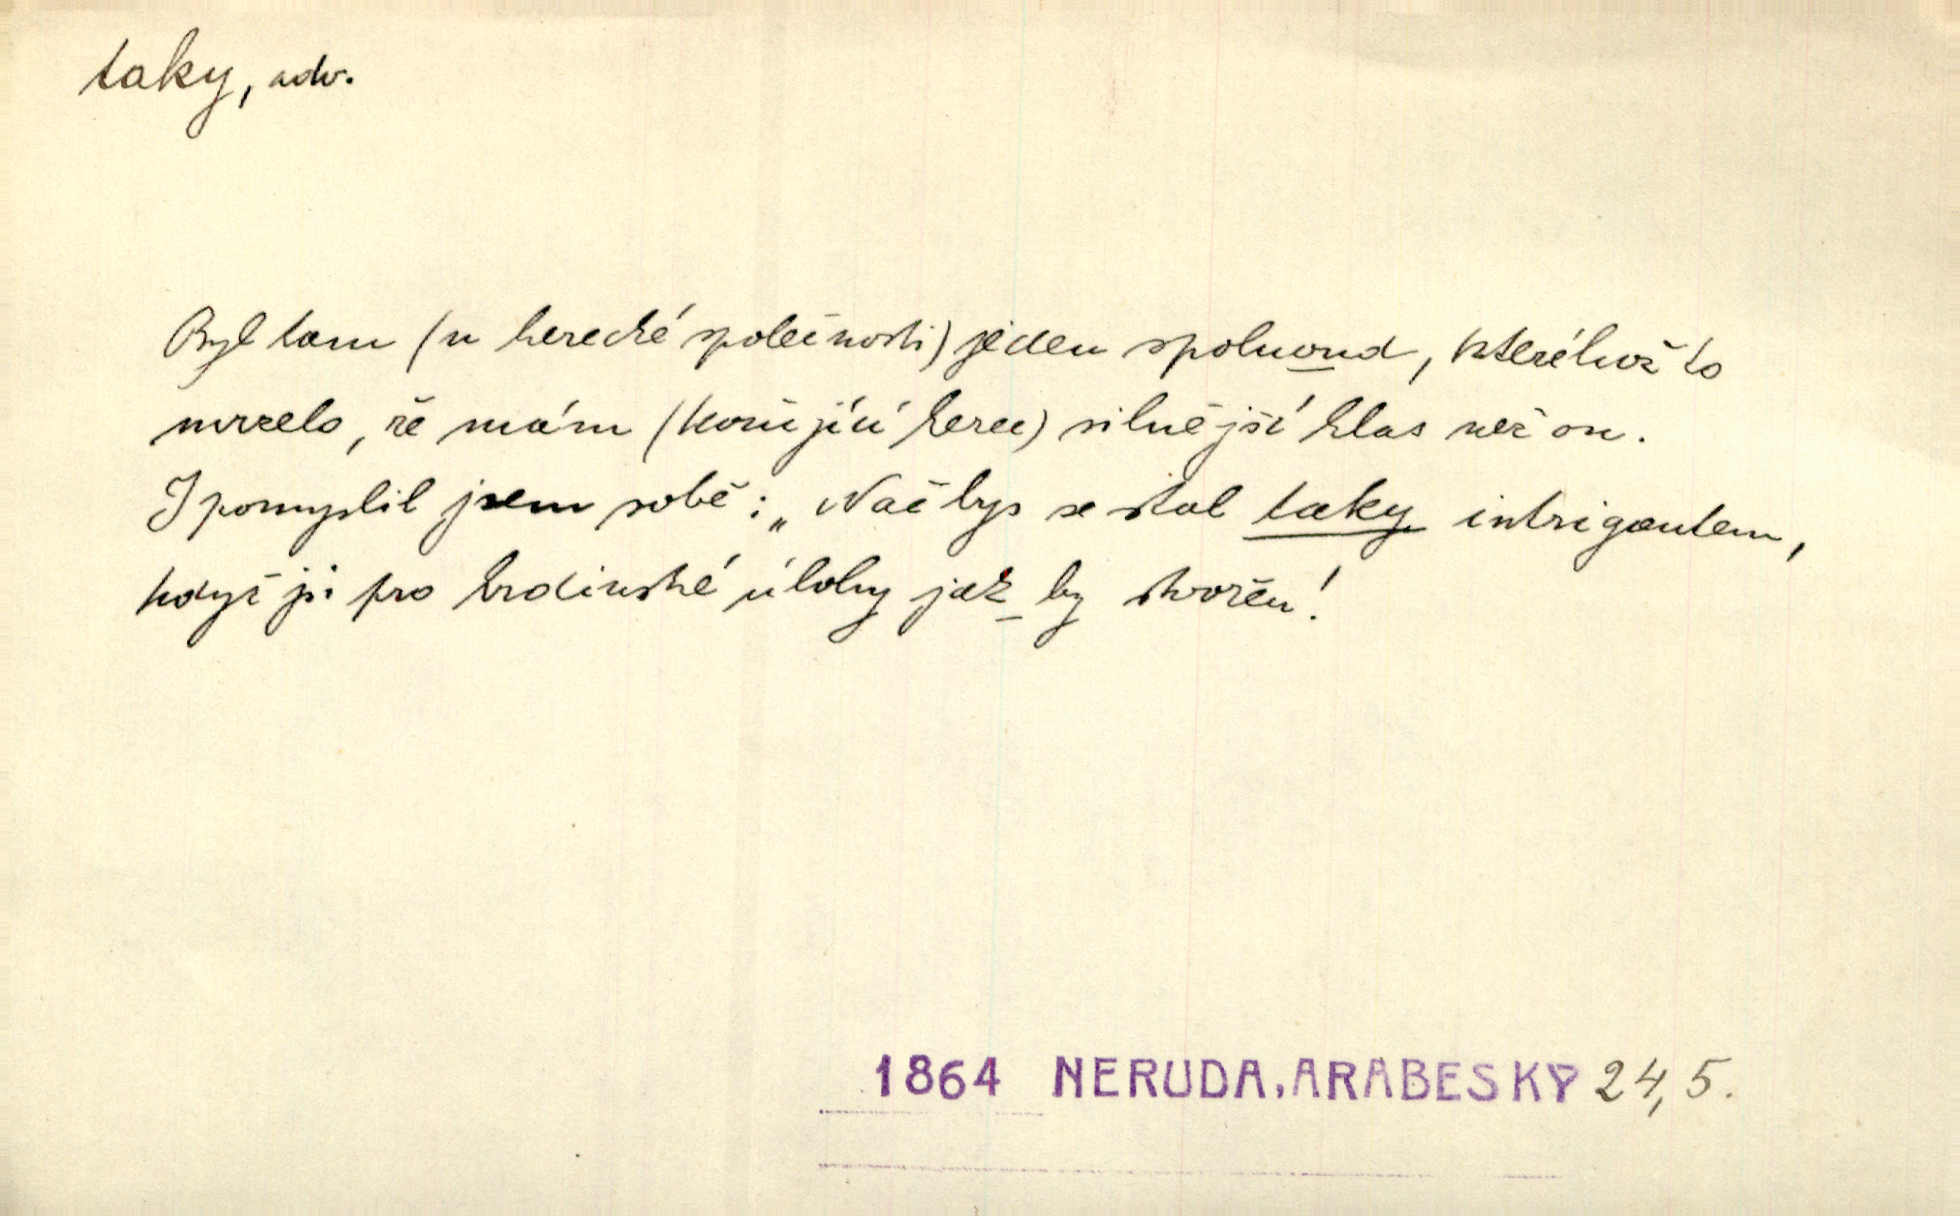 taky, adv.
Byl tam (u herecké společnosti) jeden spoluoud, kteréhož to
mrzelo, že mám (kočující herec) silnější hlas než on.
I pomyslil jsem sobě: „Nač bys se stal taky intrigantem,
když jsi pro hrdinské úlohy jak by stvořen!
1864 NERUDA, ARABESKY 24,5.